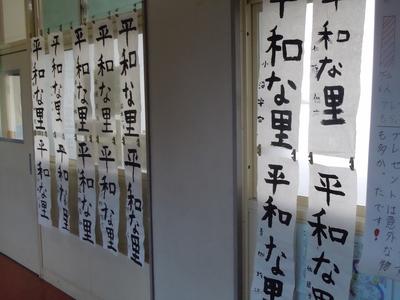 プレゼントは意外な物
も多かったです!
平和な里
平和な里
平和な里
平和な里
平和な里
平和な里
平和な里
平和な里
平和な里
平和な里
平和な里
平和な里
平和な里
平和な里